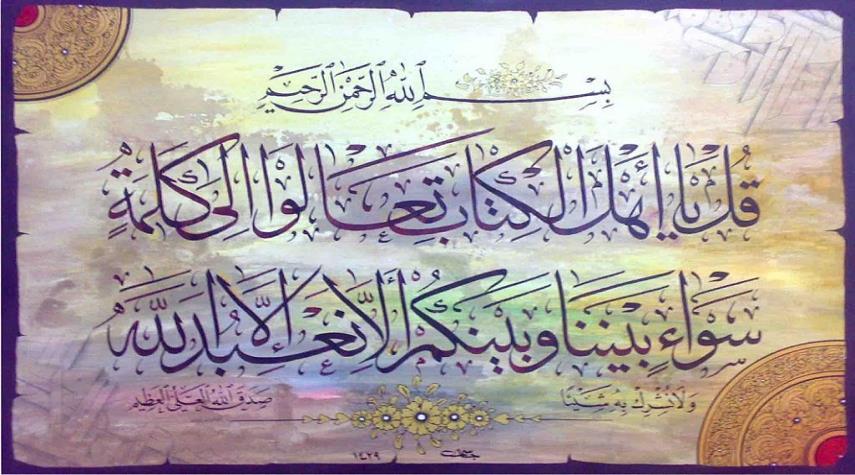 بِسْمِ اللهِ الرَّحْمٰنِ الرَّحِيْمِ
قُل يا أَهلَ الكِتابِ تَعالَوا إِلى كَلِمَةٍ
سَواءٍ بَينَنا وَبَينَكُم أَلّا نَعبُدَ إِلَّا اللَّهَ
وَلا نُشْرِكَ بِهِ شَيْئًا صَدَقَ اللهُ العَلِيُّ العَظِيْم
١٤٢٩